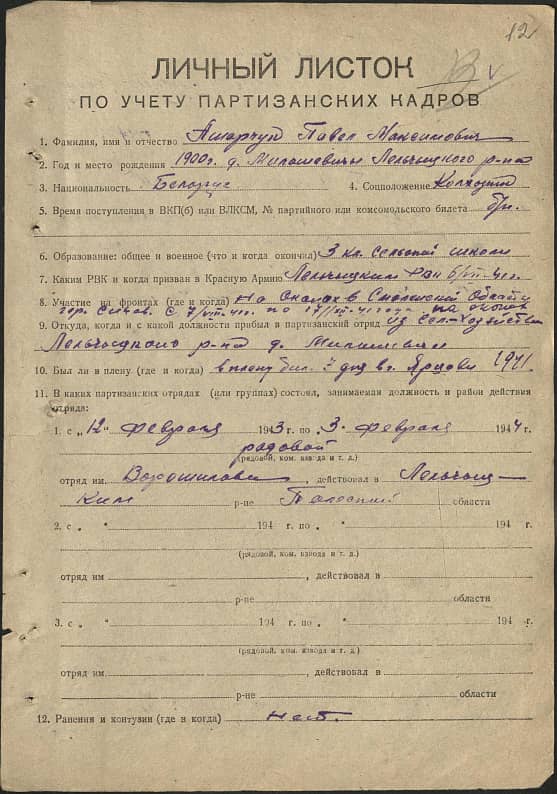 12
ЛИЧНЫЙ ЛИСТОК
ПО УЧЕТУ ПАРТИЗАНСКИХ КАДРОВ
1. Фамилия, имя и отчество Ашарчук Павел Максимович
2. Год и место рождения 1900г. д. Милошевичи Лельчицкого р-на
3. Национальность Белорус 4. Соцположение Колхозник
5. Время поступления в ВКП(б) или ВЛКСМ, № партийного или комсомольского билета б/п.
6. Образование: общее и военное (что и когда окончил) 3 кл. сельской школы
7. Каким РВК и когда призван в Красную Армию Лельчицким РВК 6/VII-41г.
8. Участие на фронтах (где и когда) На Окопах в Смоленской Области
гор. С 7/VII-41г. по на окопах
9. Откуда, когда и с какой должности прибыл в партизанский отряд из Сел-хозяйства
Лельчицкого р-на д. Милошевичи
10. Был ли в плену (где и когда) в плену был 7 дня в г. Ярцеви 1941.
11. В каких партизанских отрядах (или группах) состоял, занимаемая должность и район действия
отряда:
1. с „12" февраля 1943 г. по „3" февраля 1944 г.
рядовой
(рядовой, ком. взвода и т. д.)
отряд им Ворошилова, действовал в Лельчиц-
ким р-не Полесский области
2. с „ " 194 г. по „ " 194 г.
(рядовой, ком. взвода и т. д.)
отряд им , действовал в
р-не области
3. с „ " 194 г. по „ " 194 г.
(рядовой, ком. взвода и т. д.)
отряд им , действовал в
р-не области
12. Ранения и контузии (где в когда) нет.